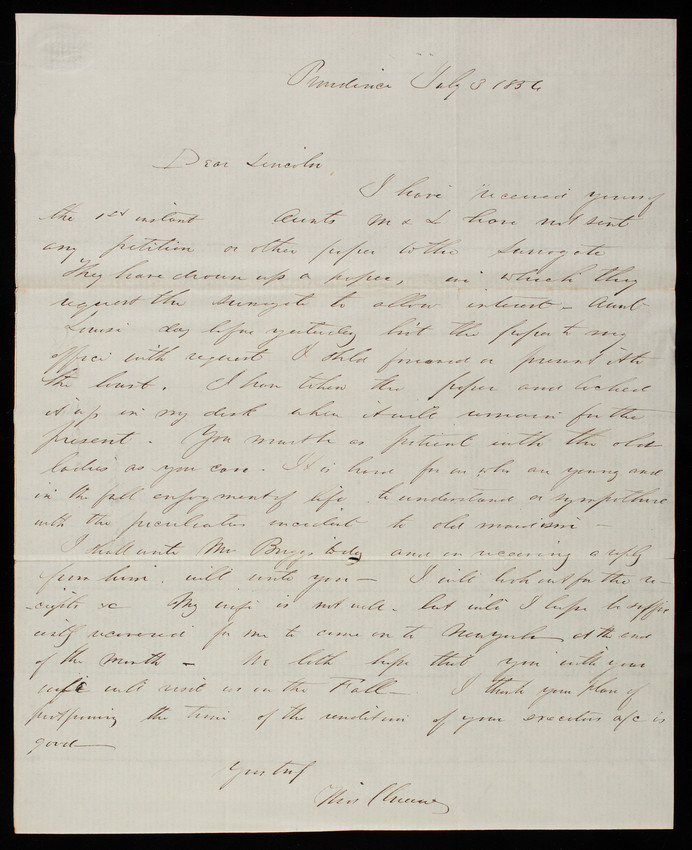 Providence July 3 1856
Dear Lincoln
I have received yours of
the 1st instant Aunts M & L have not sent
any petition or other paper to the Surrogate
They have drawn up a paper, in which they
request the surrogate to allow interest - Aunt
Louisa day before yesterday left the paper to my
office with request I should forward or present it to
the Court. I have taken the paper and locked
it up in my desk where it will remain for the
present. You must be as patient with the old
ladies as you can. It is hard for us who are young and
in the full enjoyment of life to understand or sympathise
with the peculiarities incident to old maidism -
I shall write Mr Briggs today and on receiving a reply
from him will write you - I will look out for the re-
-ceipts &c My wife is not well - but will I hope be suffic
iently recovered for me to come on to New York at the end
of the month - We both hope that you with your
wife will visit us in the Fall - I think your plan of
postponing the time of the rendition of your executors a/c is
good
Yours truly
Thos